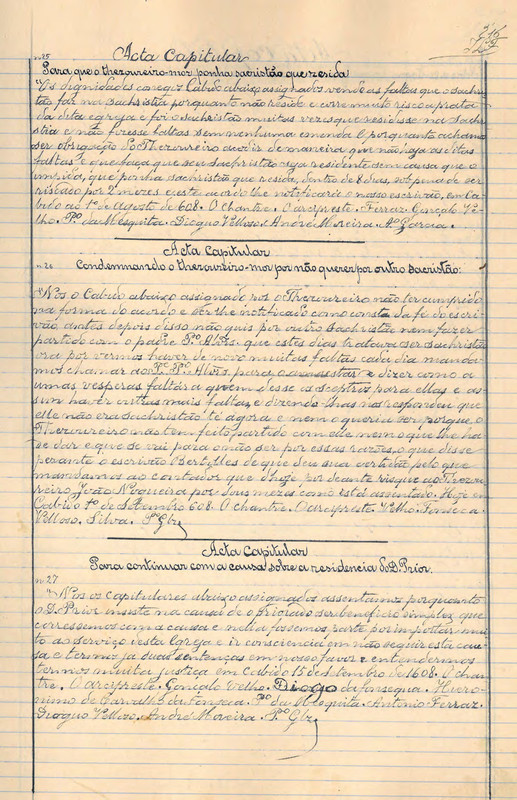 nº 25 Acta Capitular
Para que o thezoureiro-mor ponha sacristão que rezida
"Os dignidades conegos Cabido abaixo assignados vendo as faltas que o sachris
tão faz na sachristia porquanto não reside e corre muito risco a prata
da dita egreja e foi o sachristão muitas vezes que residisse na sachris
tia e não fizesse faltas sem nenhuma emenda. E porquanto achamos
ser obrigação do Thezoureiro acodir de maneira, que não haja as ditas
faltas e que faça que seu sachristão seja residente sem causa que o
impida, que ponha sachristão que rezida, dentro de 8 dias, sob pena de ser
riscado por 2 mezes e este acordo lhe notificará o nosso escrivão, em Ca
bido ao 1º de Agosto de 608. O chantre. O arcipreste. Ferraz. Gonçalo Ve
lho. Pº da Mesquita. Diogo Velloso. André Moreira. Garcia.
Acta Capitular
nº 26 Condemnando o thezoureiro-mor por não querer pôr outro sacristão:
"Nos o Cabido abaixo assignado nos o Thezoureiro não ter cumprido
na forma do acordo e ser lhe notificado como consta da fé do escri
vão dantes depois disso não quis por outro Sachristão nem fazer
partido com o padre Pº Alvs. que estes dias tratava ser sachristão
ora por vermos haver de novo muitas faltas cada dia manda-
mos chamar ao Pº Alvs. para e dizer como a
umas vesperas faltára quem desse os sceptros para ellas e as-
sim haver outras mais faltas, e dizendo-lhas nos respondeu que
elle não era sachristão té agora e nem o queria ser porque o
Thezoureiro não tem feito partido com elle nem o que lhe ha
de dar e que se vai para o não ser por essas razões, o que disse
perante o escrivão de que deu sua certidão pelo que
mandamos ao contador que d'hoje por deante risque ao Thezou-
reiro João Nogueira por dous mezes como está assentado. Hoje em
Cabido 1º de Setembro 608. O chantre. O arcipreste. Velho. Fonseca.
Velloso. Silva. Pº Glz.
Acta Capitular
Para continuar com a causa sobre a residencia do D. Prior.
nº 27
"Nos os capitulares abaixo assignados assentamos porquanto
o D. Prior insiste na causa de o priorado ser beneficio simplez, que
corressemos com a causa e nella fossemos parte por importar mui-
to ao serviço desta Egreja e ir consciencia em não seguir esta cau-
sa e termos já duas sentenças em nosso favor e entendermos
termos muita justiça em Cabido 15 de Setembro de 1608. O chan-
tre. O arcipreste. Gonçalo Velho. Diogo da fonsequa. Hiero-
nimo de Carvalho da Fonseca. Pº da Mesquita. Antonio Ferraz.
Diogo Velloso. André Moreira. Pº Glz.